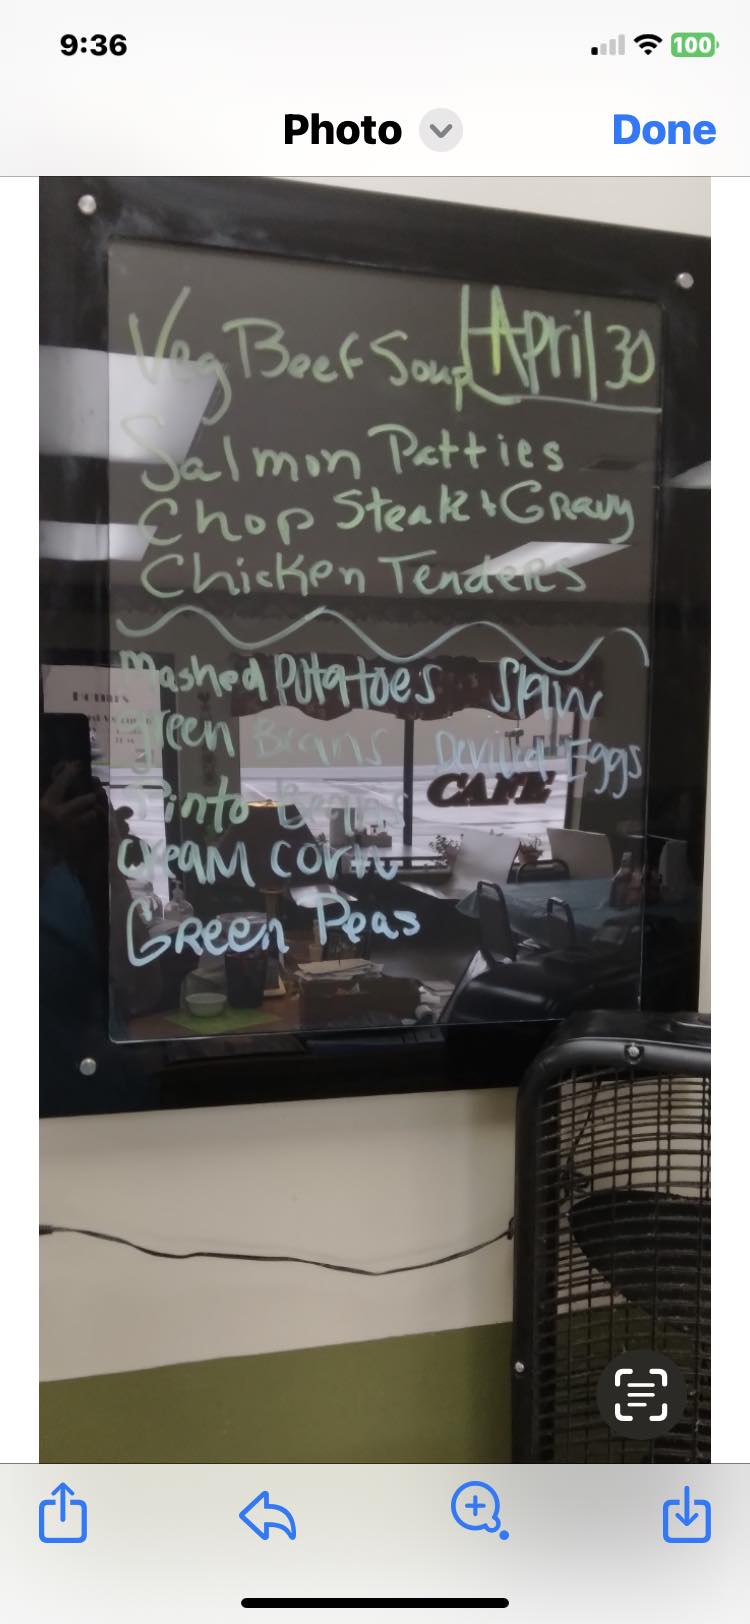 9:36
100
Photo
Done
Veg Beef Soup
April 30
Salmon Patties
Chop Steak & Gravy
Chicken Tenders
Mashed Potatoes Slaw
Green Beans Deviled Eggs
CAFE
Pinto Beans
Cream Corn
Green Peas